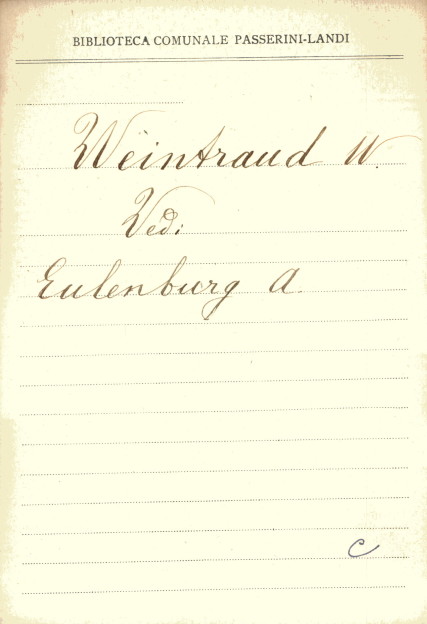 BIBLIOTECA COMUNALE PASSERINI-LANDI
Weintraud W.
Vedi
Eulenburg A.
C